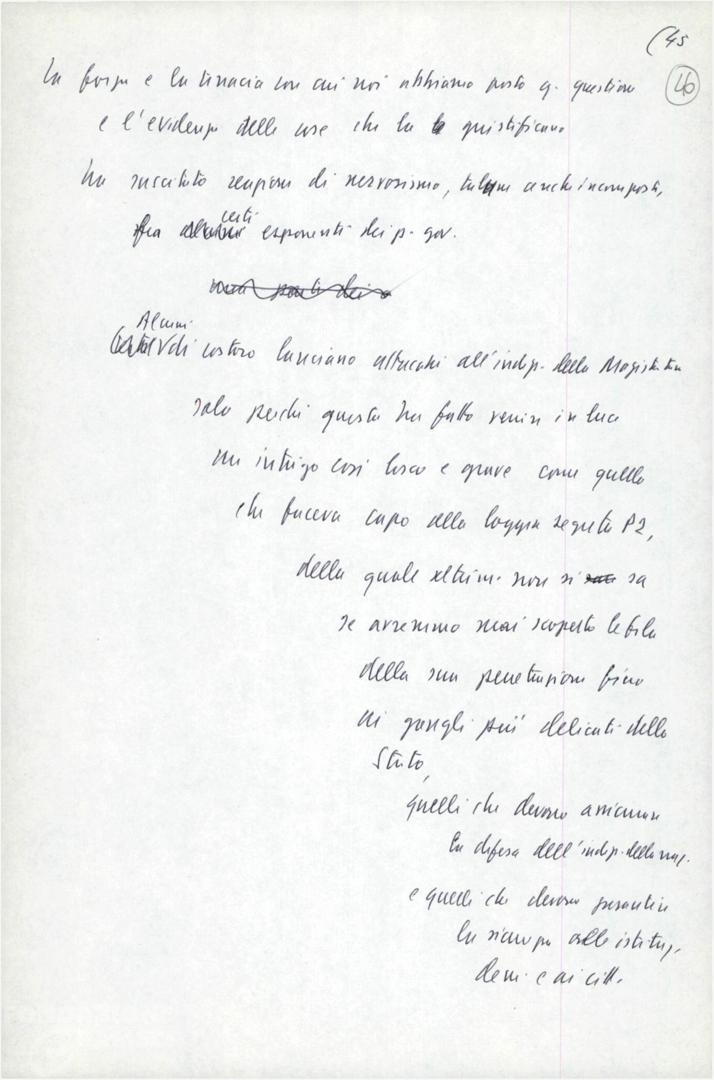 (45
46
La forza e la tenacia con cui noi abbiamo posto q. questione
e l'evidenza delle cose che la giustificano
ha suscitato reazioni di nervosismo, talora anche incomposti,
certi
fra alcuni esponenti dei p. gov.
Alcuni
di costoro lanciano attacchi all'indip. della Magistratura
solo perché questa ha fatto venire in luce
un intrigo così losco e grave come quello
che faceva capo alla loggia segreta P2,
della quale altrim. non si sa
se avremmo mai scoperto le fila
della sua penetrazione fino
ai gangli più delicati dello
Stato,
quelli che devono assicurare
la difesa dell'indip. della naz.
e quelli che devono garantire
la sicurezza alle istituz.
dem. e ai citt.